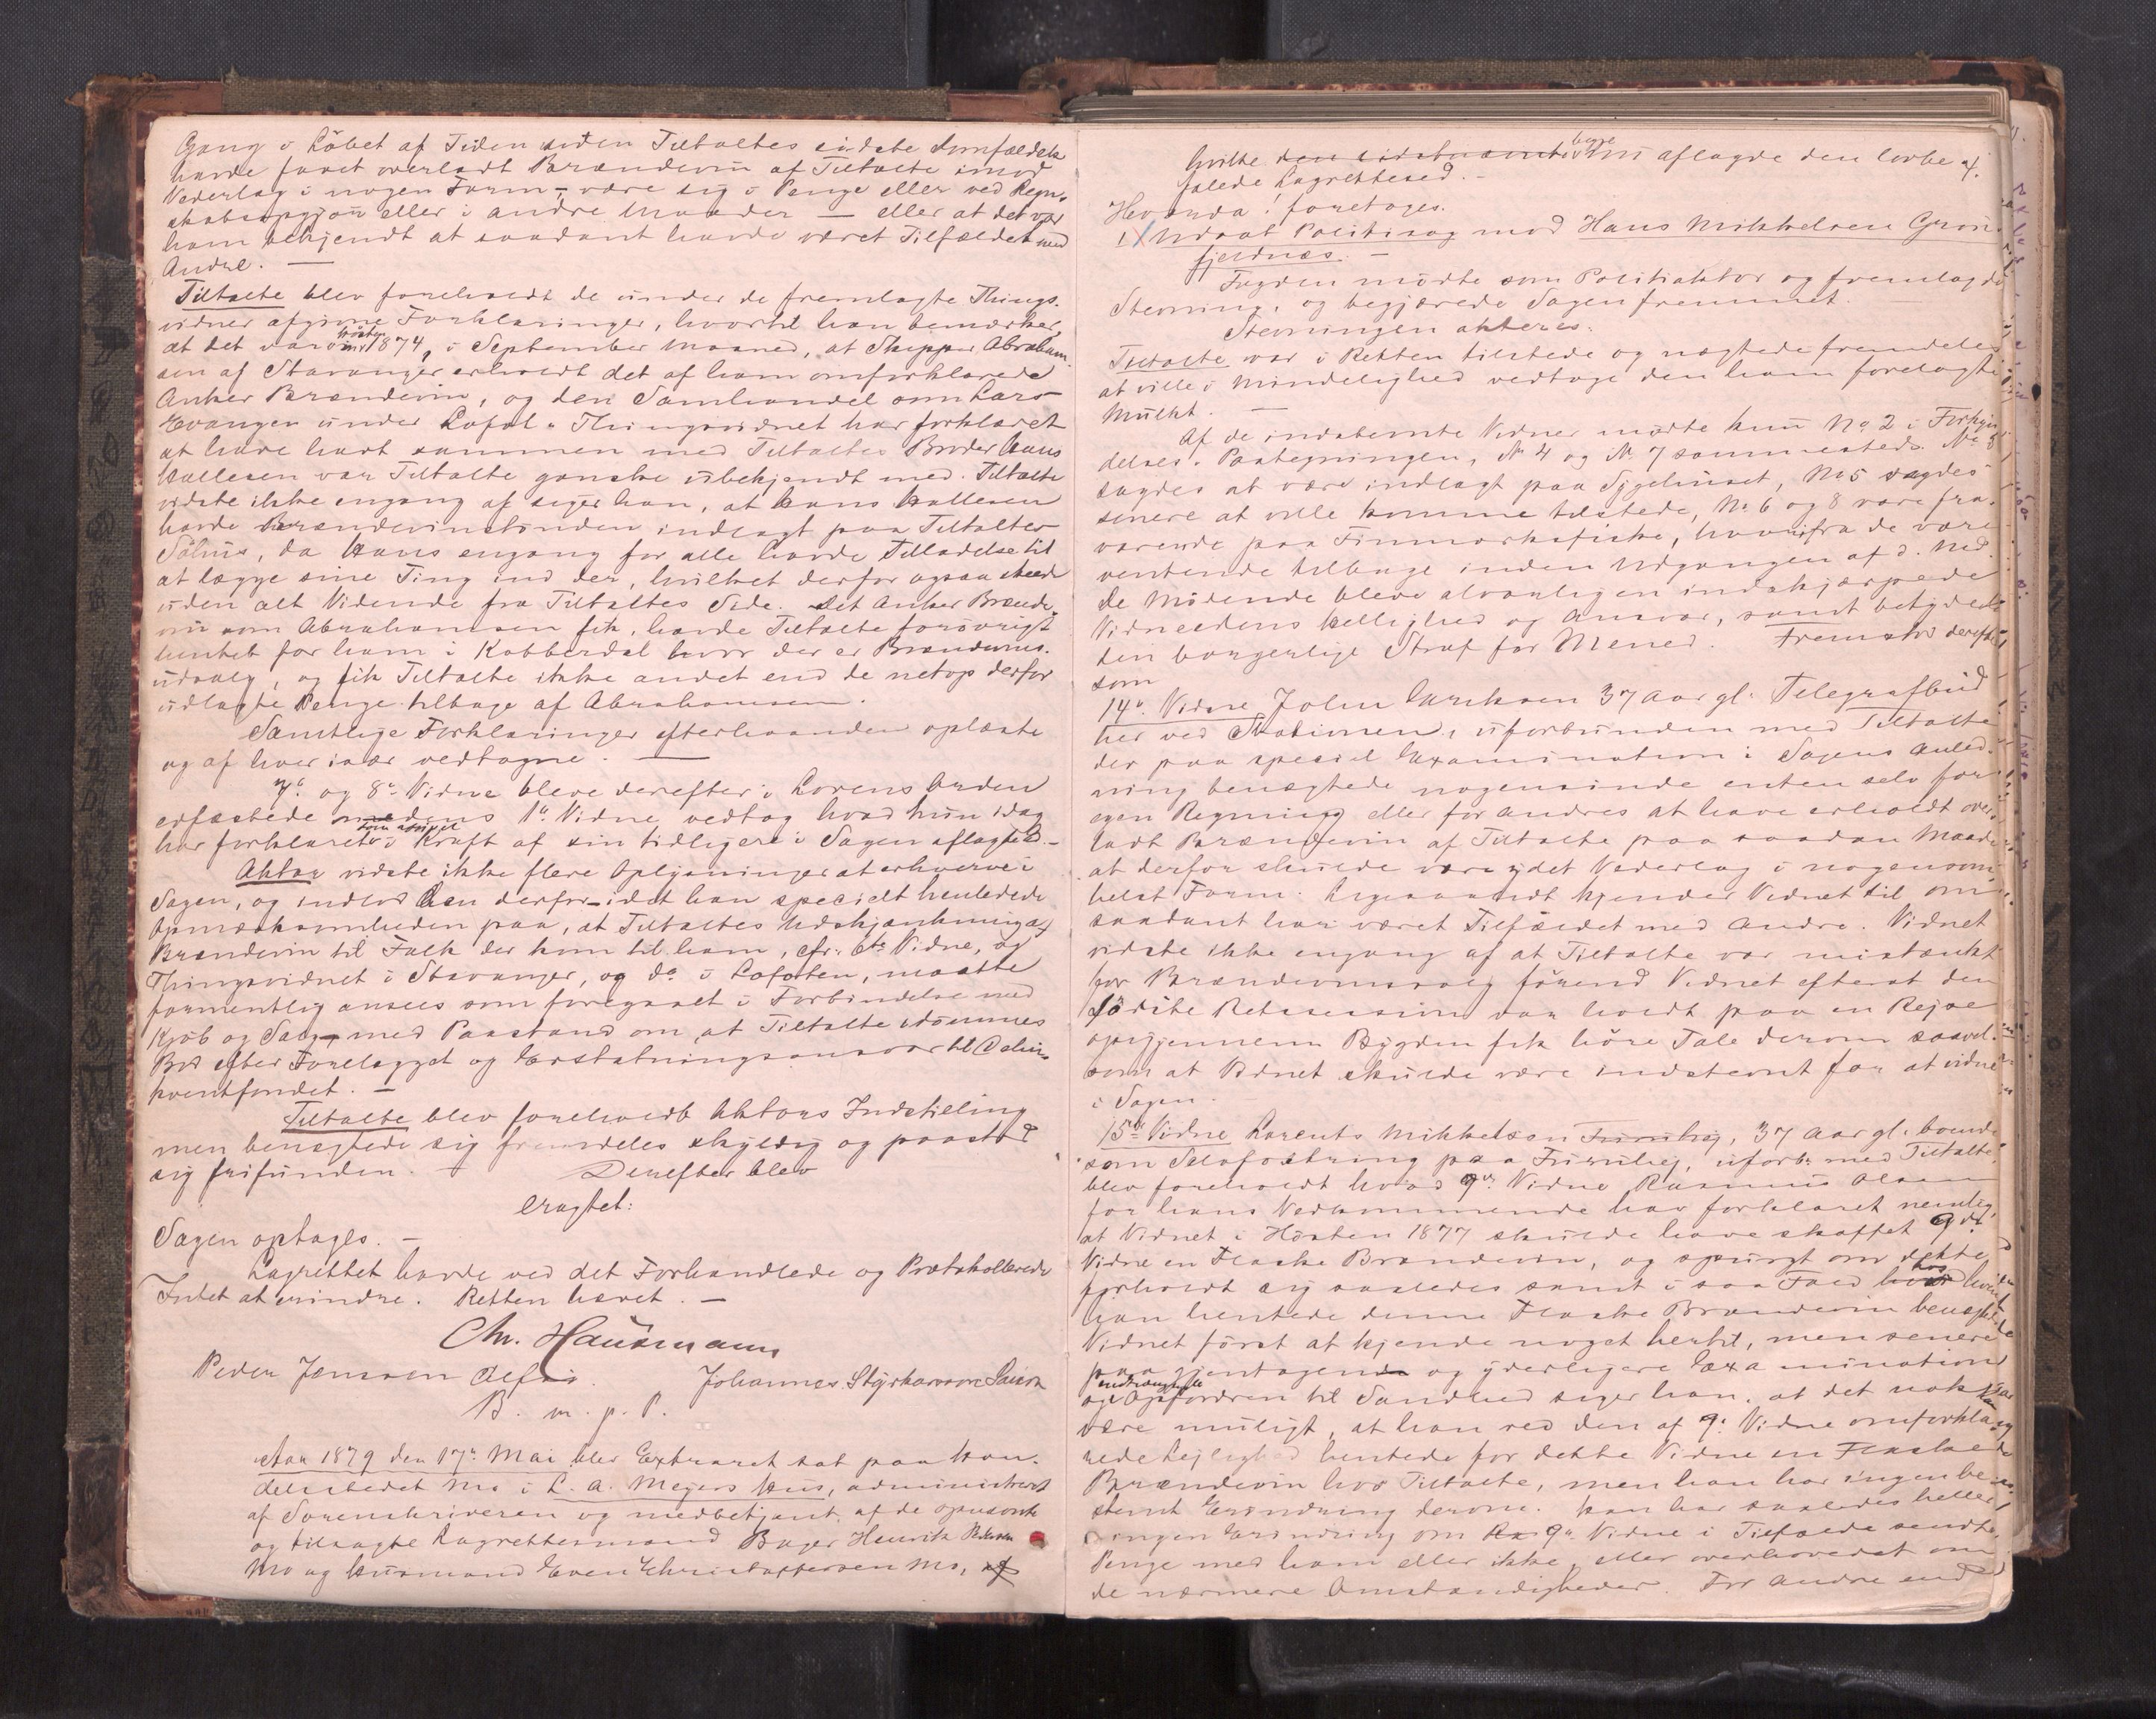 Gang i Löbet af Tiden siden Tiltaltes sidste Domfældelse
havde faaet overladt Brændeviin af Tiltalte imod
Vederlag i nogen Form – være sig i Penge eller ved Regn-
skabsopgjör eller i andre Maader — eller at det var
ham bekjendt at saadant havde været Tilfældet med
Andre. —
Tiltalte blev foreholdt de under de fremlagte Things-
vidner afgivne Forklaringer, hvortil han bemærker,
at det var om Hösten 1874, i September Maaned, at Skipper Abraham-
sen af Stavanger erholdt det af ham omforklarede
Anker Brændeviin, og den Samhandel som Lars
Evangen under Lofot-Thingsvidnet har forklaret
at have havt sammen med Tiltaltes Broder Hans
Kallesen var Tiltalte ganske ubekjendt med. Tiltalte
vidste ikke engang af siger han, at Hans Kallesen
havde Brændevinstönden indlagt paa Tiltaltes
Söhus, da Hans engang for alle havde Tilladelse til
at lægge sine Ting ind der, hvilket derfor ogsaa skede
uden alt Vidende fra Tiltaltes Side. Det Anker Brænde-
vin som Abrahamsen fik, havde Tiltalte forövrigt
hentet for ham i Kobberdal hvor der er Brændevins-
udsalg, og fik Tiltalte ikke andet end de netop derfor
udlagte Penge tilbage af Abrahamsen.
Samtlige Forklaringer efterhaanden oplæste
og af hver især vedtagne. —
7de og 8de Vidne bleve derefter i Lovens Orden
edfæstede medens 1ste Vidne vedtog hvad hun idag
har forklaret som afgivet i Kraft af sin tidligere i Sagen aflagte Ed. –
Aktor vidste ikke flere Oplysninger at erhverve i
Sagen, og indlod den derfor – idet han specielt henledede
Opmærksomheden paa, at Tiltaltes Udskjænkning af
Brændevin til Folk der kom til ham, cfr. 6te Vidne, og
Thingsvidnet i Stavanger, og do i Lofoten, maatte
formentlig ansees som foregaaet i Forbindelse med
Kjöb og Salg – med Paastand om, at Tiltalte idömmes
Bod efter Forelægget og Erstatningsansvar til Delin-
kventfondet. –
Tiltalte blev foreholdt Aktors Indstilling
men benægtede sig fremdeles skyldig og paastod
sig frifunden. –      Derefter blev
eragtet:
Sagen optages. –
Lagrettet havde ved det Forhandlede og Protokollerede
Intet at erindre. Retten hævet. —
Chr. Hausmann
Peder Jensson      Johannes Styrkarsson
B. m. p. P.
Aar 1879 den 17de Mai blev Extraret sat paa Han-
delsstedet Mo i L. A. Meyers Hus, administreret
af Sorenskriveren og medbetjent af de opnævnte
og tilsagte Lagrettesmænd Bager Henrik Pedersen
Mo og Husmand Even Christoffersen Mo, af
hvilke den sidstnævnte begge nu aflagde den lovbe-
falede Lagrettesed. –
Hvorda! foretoges.
1) Udsat Politisag mod Hans Mikkelsen Grön-
fjeldnæs. –
Fogden mödte som Politiaktor og fremlagde
Stevning, og begjærede Sagen fremmet.
Stevningen akteres.
Tiltalte var i Retten tilstede og nægtede fremdeles
at ville i Mindelighed vedtage den ham forelagte
Mulkt. —
Af de indstevnte Vidner mödte kun No 2 i Forkyn-
delses-Paategningen, No 4 og No 7 sammesteds. No 3
sagdes at være indlagt paa Sygehuset, No 5 sagdes
senere at ville komme tilstede, No 6 og 8 vare fra-
værende paa Finmarksfiske, hvorifra de være
ventende tilbage inden Udgangen af d. Md.
De Mödende bleve alvorligen indskjærpede
Vidneedens Hellighed og Ansvar, samt betydede
den borgerlige Straf for Mened. Fremstod derefter
som
14de Vidne John Eriksen 37 Aar gl. Telegrafbud
her ved Stationen, uforbunden med Tiltalte
der paa speciel Examination i Sagens Anled-
ning benægtede nogensinde enten selv for
egen Regning eller for Andres at have erholdt over-
ladt Brændeviin af Tiltalte paa saadan Maade
at derfor skulde være ydet Vederlag i nogensom-
helst Form. Ligesaalidt kjender Vidnet til om
saadant har været Tilfældet med Andre. Vidnet
vidste ikke engang af at Tiltalte var mistænkt
for Brændevinssalg förend Vidnet efterat den
förste Retssession var holdt paa en Rejse
opigjennem Bygden fik höre Tale derom saavel-
som at Vidnet skulde være indstevnt for at vidne
i Sagen.
15de Vidne Lorents Mikkelsen Furuhej, 37 Aar gl. boende
som Selvfostring paa Furuhej, uforb. med Tiltalte,
blev foreholdt hvad 9de Vidne Rasmus Olsen
for hans Vedkommende har forklaret nemlig,
at Vidnet i Hösten 1877 skulde have skaffet 9de
Vidne en Flaske Brændevin, og spurgt om dette
forholdt sig saaledes samt i saa Fald hos hvem
han hentede denne Flaske Brændeviin benægtede
Vidnet först at kjende noget hertil, men senere
paa gjentagende og yderligere Examination
og indtrængende Opfordren til Sandhed siger han, at det nok kan
være muligt, at han ved den af 9de Vidne omforkla-
rede Lejlighed hentede for dette Vidne en Flaske
Brændevin hos Tiltalte, men han har ingen be-
stemt Erindring derom. Han har saaledes heller
ingen Erindring om 9de Vidne i Tilfælde sendte
Penge med ham eller ikke, eller overhovedet om
de nærmere Omstændigheder. For Andre end